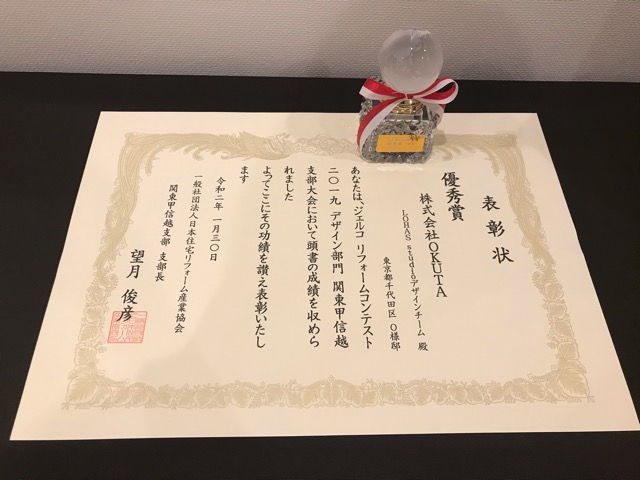 表彰状
優秀賞
株式会社OKUTA
LOHAS studioデザインチーム 殿
東京都千代田区 O様邸
あなたは、ジェルコ リフォームコンテスト
二〇一九 デザイン部門 関東甲信越
支部大会において頭書の成績を収めら
れました
よってここにその功績を讃え表彰いたし
ます
令和二年 一月三〇日
一般社団法人日本住宅リフォーム産業協会
関東甲信越支部 支部長
望月 俊彦